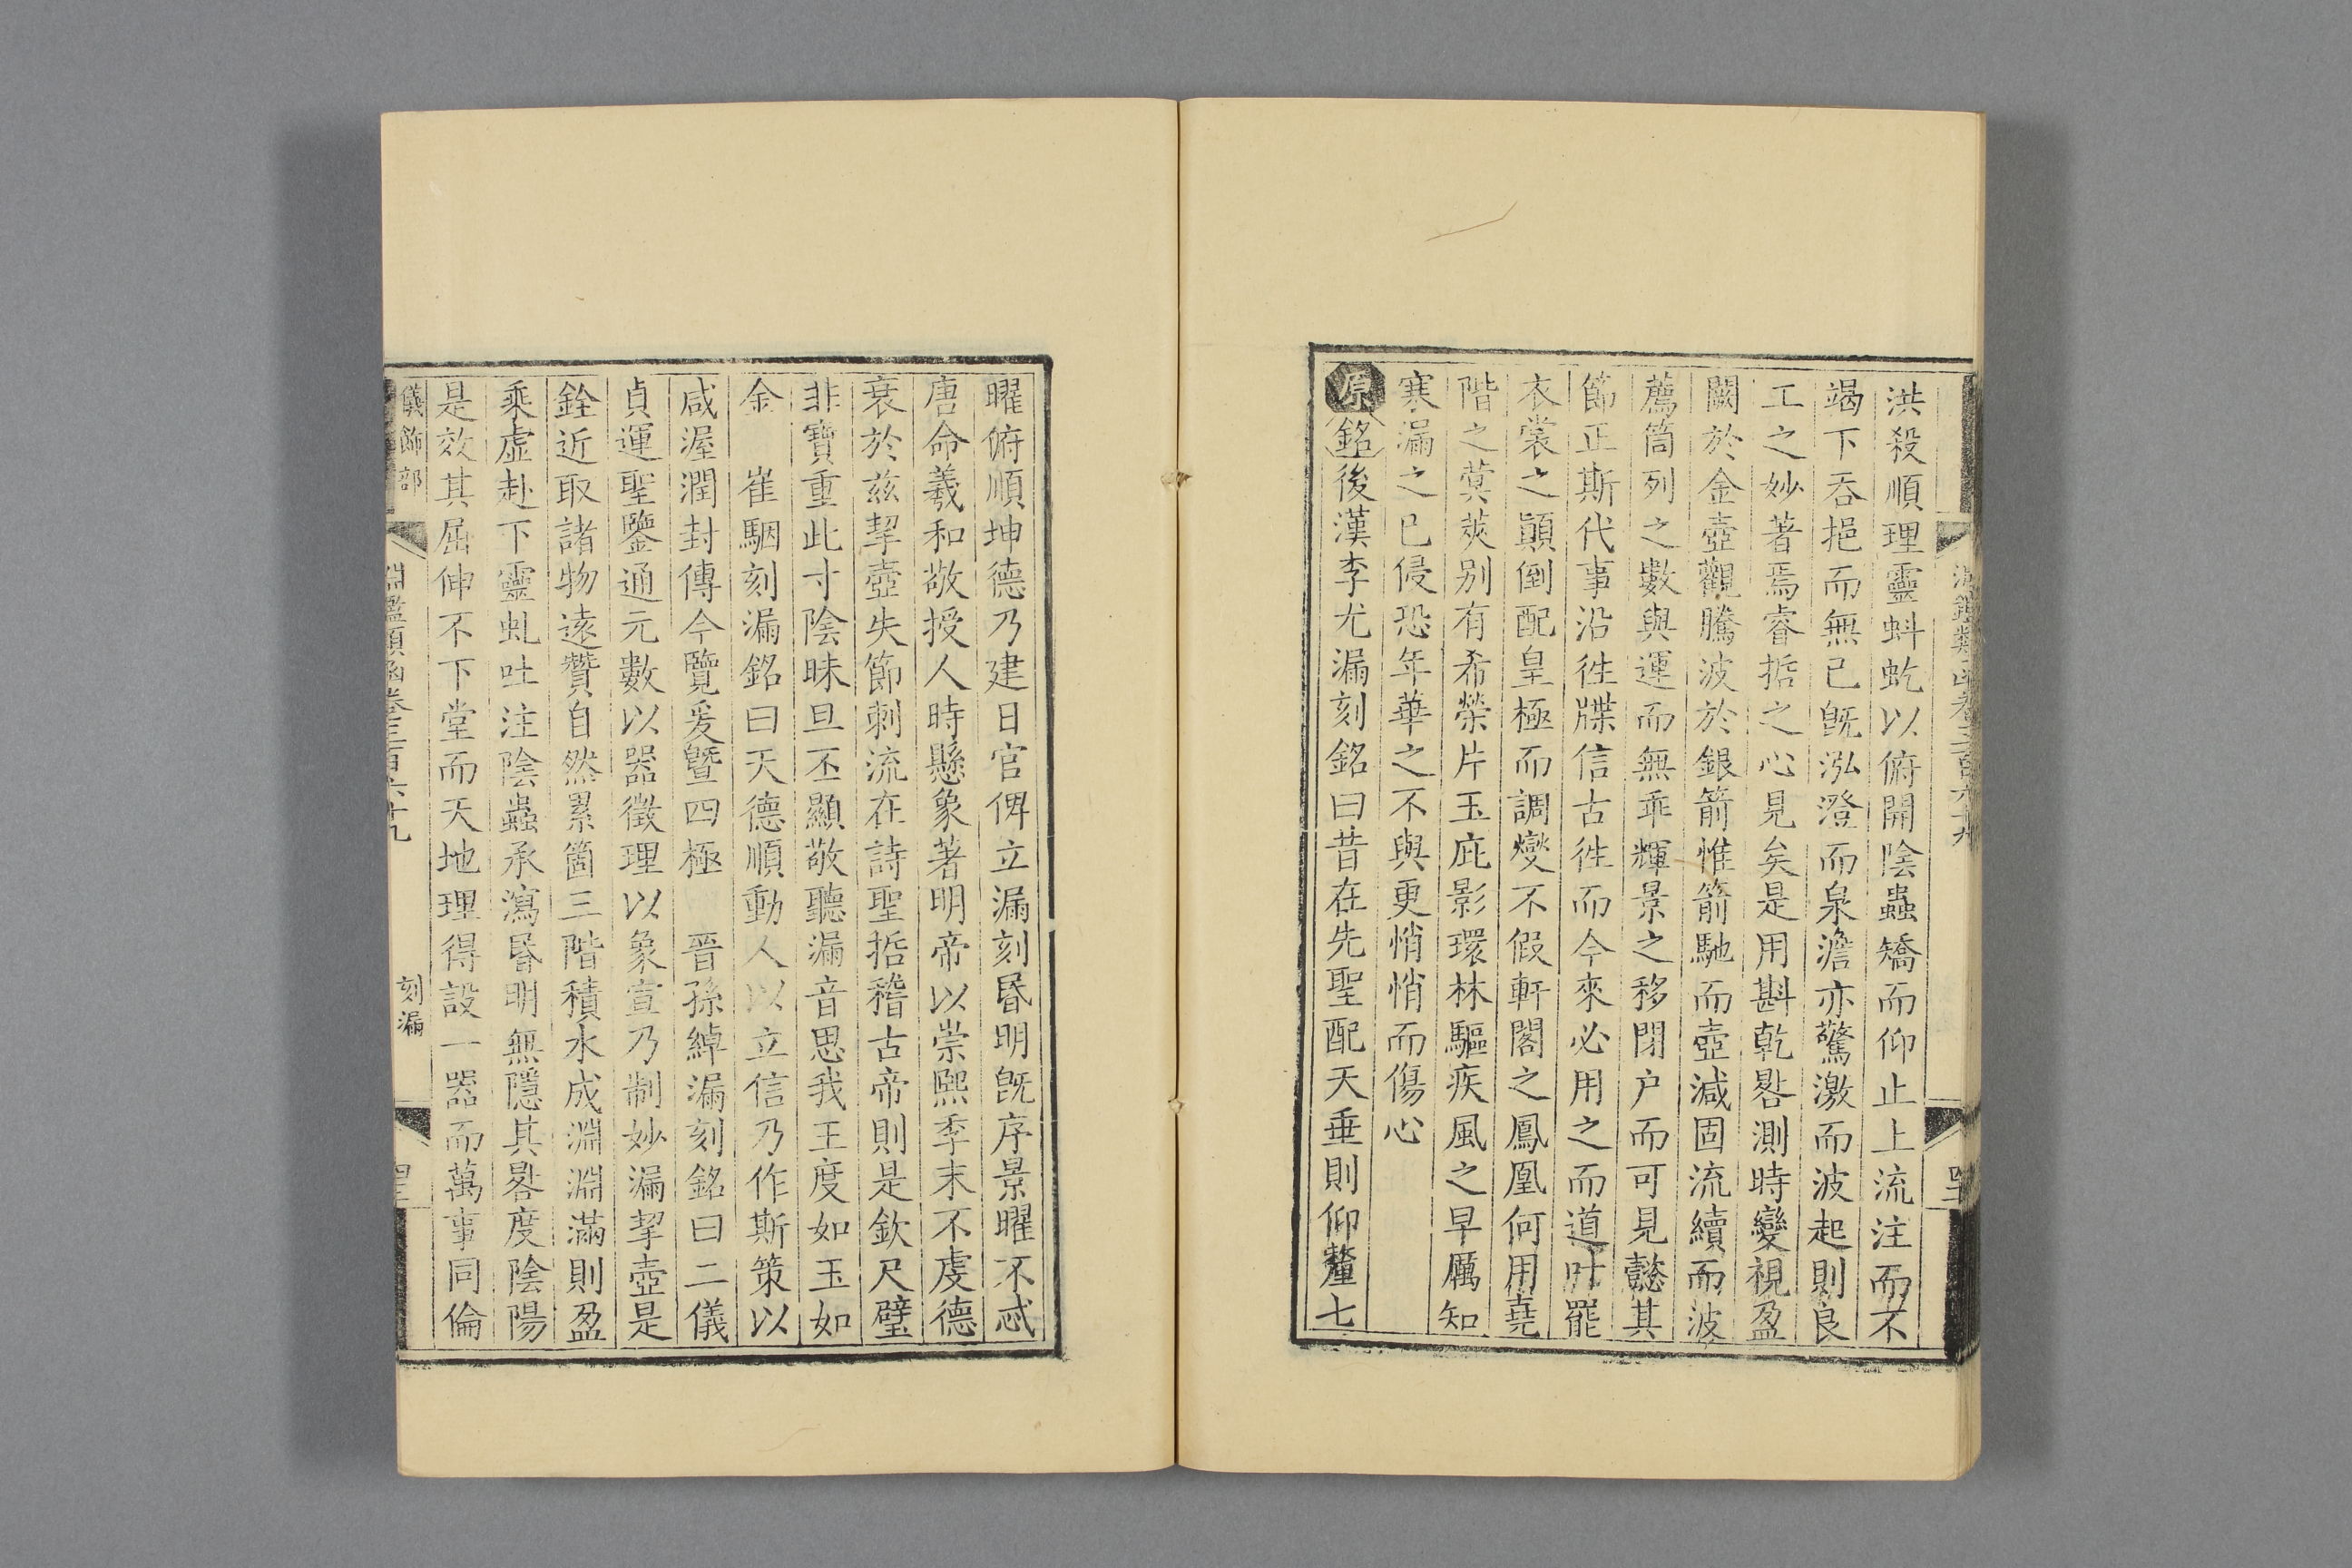 洪殺順理靈蚪虬以俯開陰蟲矯而仰止上流注而不
竭下吞挹而無已既泓澄而泉澹亦驚激而波起則良
工之妙著焉睿哲之心見矣是用斟乾晷測時變視盈
闕於金壺觀騰波於銀箭惟箭馳而壺減固流續而波
薦筒列之數與運而無乖輝景之移閉户而可見懿其
節正斯代事沿徃牒信古徃而今來必用之而道叶罷
衣裳之顛倒配皇極而調燮不假軒閣之鳳凰何用堯
階之蓂莢别有希榮片玉庇影環林驅疾風之早厲知
寒漏之已侵恐年華之不與更悄悄而傷心
原銘後漢李尤漏刻銘曰昔在先聖配天垂則仰釐七
曜俯順坤德乃建日官俾立漏刻昬明既序景曜不忒
唐命羲和敬授人時懸象著明帝以崇熙季末不虔德
衰於兹挈壺失節刺流在詩聖哲稽古帝則是欽尺璧
非寶重此寸陰昧旦丕顯敬聽漏音思我王度如玉如
金　崔駰刻漏銘曰天德順動人以立信乃作斯策以
咸渥潤封傳今覽爰曁四極　晉孫綽漏刻銘曰二儀
貞運聖鑒通元數以器徵理以象宣乃制妙漏挈壺是
銓近取諸物遠贊自然累筩三階積水成淵淵滿則盈
乘虛赴下靈虬吐注陰蟲承瀉昬明無隱其晷度陰陽
是效其屈伸不下堂而天地理得設一器而萬事同倫
儀飾部　淵鑑類函卷三百六十九　刻漏